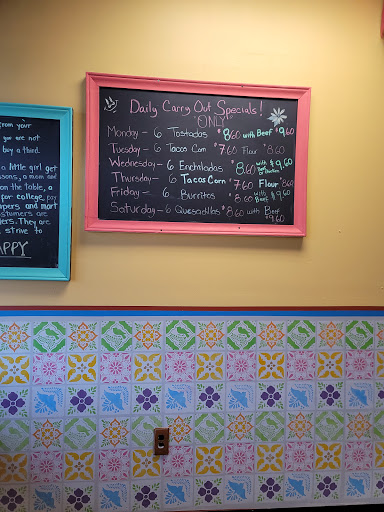 from your
you are not
buy a third.
little girl get
ssons, a mom and
on the table, a
for college, pay
mpers and mort
stumers are
ers. They are
strive to
PPY
Daily Carry Out Specials!
"ONLY"
Monday - 6 Tostados $8.60 with Beef $9.60
Tuesday - 6 Taco Corn $7.60 Flour $8.60
Wednesday - 6 Enchiladas $8.60 with Beef or Chicken $9.60
Thursday - 6 Tacos Corn $7.60 Flour $8.60
Friday - 6 Burritos $8.60 with Beef $9.60
Saturday - 6 Quesadillas $8.60 with Beef $9.60